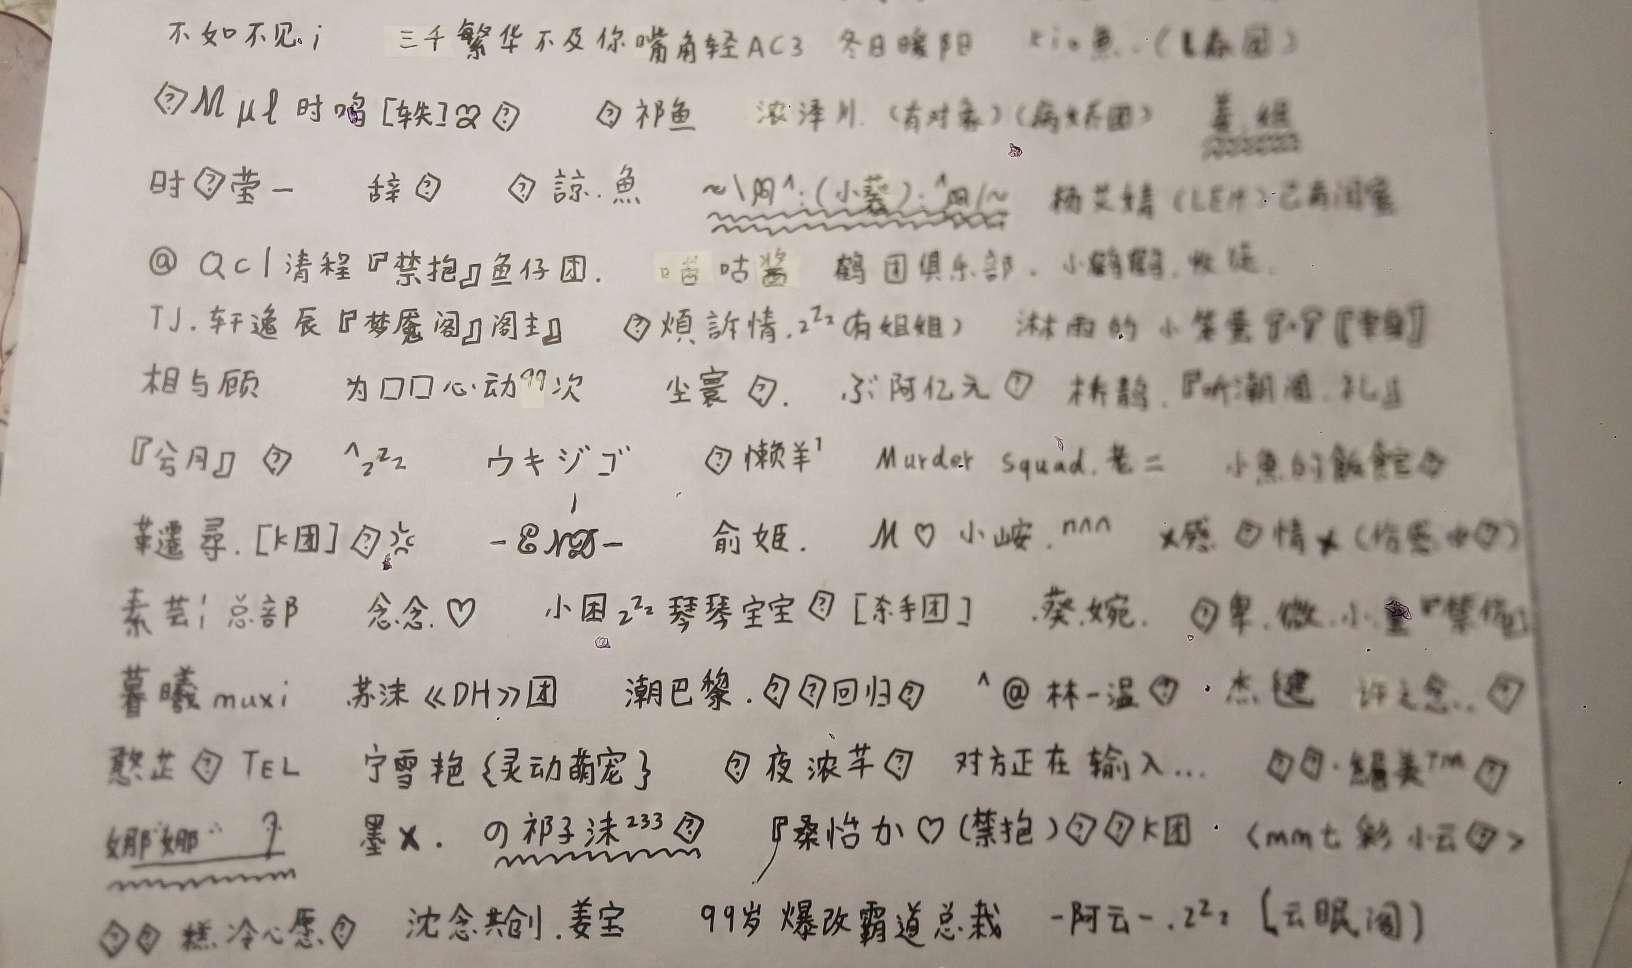 不如不见.i 三千繁华不及你嘴角轻AC3 冬日暖阳
⍰Mμl时鸣[轶]ღ⍰ ⍰祁鱼 浓泽川.(有对象)(病娇团) 姜.姐
时⍰莹一 辞⍰ ⍰諒.魚 ~\阿^:(小藜):^阿/~ 杨艾婧(LEM)已有闺蜜
@Qcl清程『禁抱』鱼仔团. 咕酱 鹤团俱乐部.小鹤鹤.
TJ.轩逸辰『梦魇阁』阁主』 ⍰煩許情.zᶻz(有姐姐) 淋雨的小笨蛋
相与顾 为口口心动⁹⁹次 尘寰⍰. ぶ阿亿元⍰ 桥鹊.『听潮阁.礼』
『兮月』⍰ ^zᶻz ウキジゴ ⍰懒羊¹ Murder squad.老二 小魚的飯館⍰
遷尋.[K团]⍰ -END- 俞姬. M♡小峖.ⁿ^^ ⍰情★(伤感中⍰)
素芸¦总部 念念.♡ 小困zᶻz琴琴宝宝⍰[杀手团] .葵.婉. ⍰卑.微.小.
暮曦muxi 苏沫《DH》团 潮巴黎.⍰⍰回归⍰ ^@林一温⍰ ·杰健 许之念..⍰
憨芷⍰TEL 宁雪艳{灵动萌宠} ⍰夜浓芊⍰ 对方正在输入... ⍰⍰.美™⍰
娜"娜" ? 墨×. の祁子沫²³³⍰ 『桑怡か♡(禁抱)⍰⍰K团· <mm七彩小云⍰>
⍰⍰糕冷心愿⍰ 沈念共创.姜宝 99岁爆改霸道总裁 -阿云-.zᶻz〔云眠阁〕